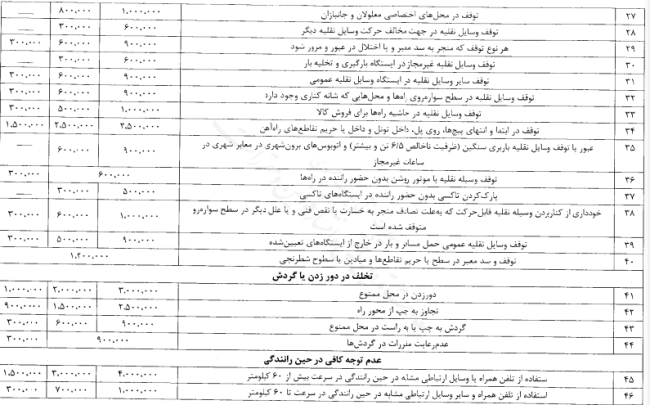 ۲۷ توقف در محل‌های اختصاصی معلولان و جانبازان ۱.۰۰۰.۰۰۰ ۸۰۰.۰۰۰ ——
۲۸ توقف وسایل نقلیه در جهت مخالف حرکت وسایل نقلیه دیگر ۶۰۰.۰۰۰ ۳۰۰.۰۰۰ ——
۲۹ هر نوع توقف که منجر به سد معبر و یا اختلال در عبور و مرور شود ۹۰۰.۰۰۰ ۶۰۰.۰۰۰ ۳۰۰.۰۰۰
۳۰ توقف وسایل نقلیه غیرمجاز در ایستگاه بارگیری و تخلیه بار ۶۰۰.۰۰۰ ۳۰۰.۰۰۰ ——
۳۱ توقف سایر وسایل نقلیه در ایستگاه وسایل نقلیه عمومی ۹۰۰.۰۰۰ ۶۰۰.۰۰۰ ۳۰۰.۰۰۰
۳۲ توقف وسایل نقلیه در سطح سواره‌روی راه‌ها و محل‌هایی که شانه کناری وجود دارد ۹۰۰.۰۰۰ ۶۰۰.۰۰۰ ۳۰۰.۰۰۰
۳۳ توقف وسایل نقلیه در حاشیه راه‌ها برای فروش کالا ۱.۰۰۰.۰۰۰ ۵۰۰.۰۰۰ ۳۰۰.۰۰۰
۳۴ توقف در ابتدا و انتهای پیچ‌ها، روی پل، داخل تونل و داخل یا حریم تقاطع‌های راه‌آهن ۲.۵۰۰.۰۰۰ ۲.۵۰۰.۰۰۰ ۱.۵۰۰.۰۰۰
۳۵ عبور یا توقف وسایل نقلیه باربری سنگین (ظرفیت ناخالص ۶/۵ تن و بیشتر) و اتوبوس‌های برون‌شهری در معابر شهری در ۹۰۰.۰۰۰ ۶۰۰.۰۰۰ ——
ساعات غیرمجاز
۳۶ توقف وسیله نقلیه با موتور روشن بدون حضور راننده در راه‌ها ۶۰۰.۰۰۰ ۳۰۰.۰۰۰
۳۷ پارک‌کردن تاکسی بدون حضور راننده در ایستگاه‌های تاکسی ۵۰۰.۰۰۰ ۳۰۰.۰۰۰ ——
۳۸ خودداری از کنار‌بردن وسیله نقلیه قابل‌حرکت که به‌علت تصادف منجر به خسارت یا نقص فنی و یا علل دیگر در سطح سواره‌رو ۱.۰۰۰.۰۰۰ ۶۰۰.۰۰۰ ۳۰۰.۰۰۰
متوقف شده است
۳۹ توقف وسایل نقلیه عمومی حمل مسافر و بار در خارج از ایستگاه‌های تعیین‌شده ۹۰۰.۰۰۰ ۵۰۰.۰۰۰ ۳۰۰.۰۰۰
۴۰ توقف و سد معبر در سطح یا حریم تقاطع‌ها و میادین یا سطوح شطرنجی ۱.۲۰۰.۰۰۰
تخلف در دور زدن یا گردش
۴۱ دورزدن در محل ممنوع ۳.۰۰۰.۰۰۰ ۲.۰۰۰.۰۰۰ ۱.۰۰۰.۰۰۰
۴۲ تجاوز به چپ از محور راه ۲.۵۰۰.۰۰۰ ۱.۵۰۰.۰۰۰ ۹۰۰.۰۰۰
۴۳ گردش به چپ یا به راست در محل ممنوع ۹۰۰.۰۰۰ ۶۰۰.۰۰۰ ۳۰۰.۰۰۰
۴۴ عدم‌رعایت مقررات در گردش‌ها ۹۰۰.۰۰۰ ۳۰۰.۰۰۰
عدم توجه کافی در حین رانندگی
۴۵ ستفاده از تلفن همراه یا وسایل ارتباطی مشابه در حین رانندگی در سرعت بیش از ۶۰ کیلومتر ۴.۰۰۰.۰۰۰ ۳.۰۰۰.۰۰۰ ۱.۵۰۰.۰۰۰
۴۶ استفاده از تلفن همراه و سایر وسایل ارتباطی مشابه در حین رانندگی در سرعت تا ۶۰ کیلومتر ۱.۰۰۰.۰۰۰ ۷۰۰.۰۰۰ ۳۰۰.۰۰۰